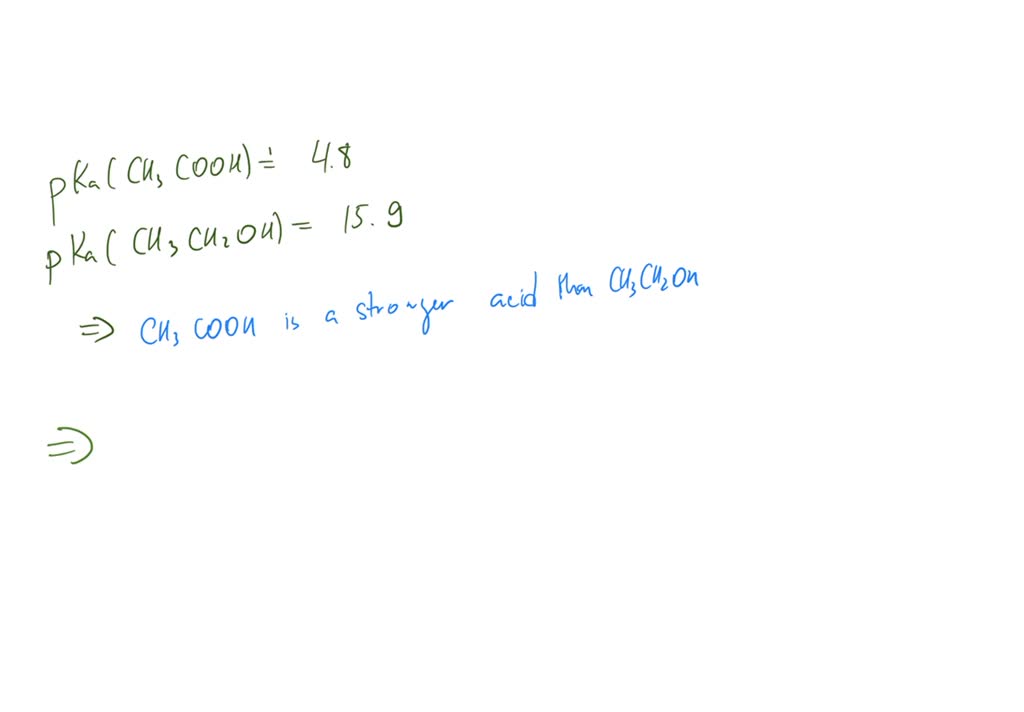 pKa(CH₃COOH) = 4.8
pKa(CH₃CH₂OH) = 15.9
⇒ CH₃COOH is a stronger acid than CH₃CH₂OH
⇒